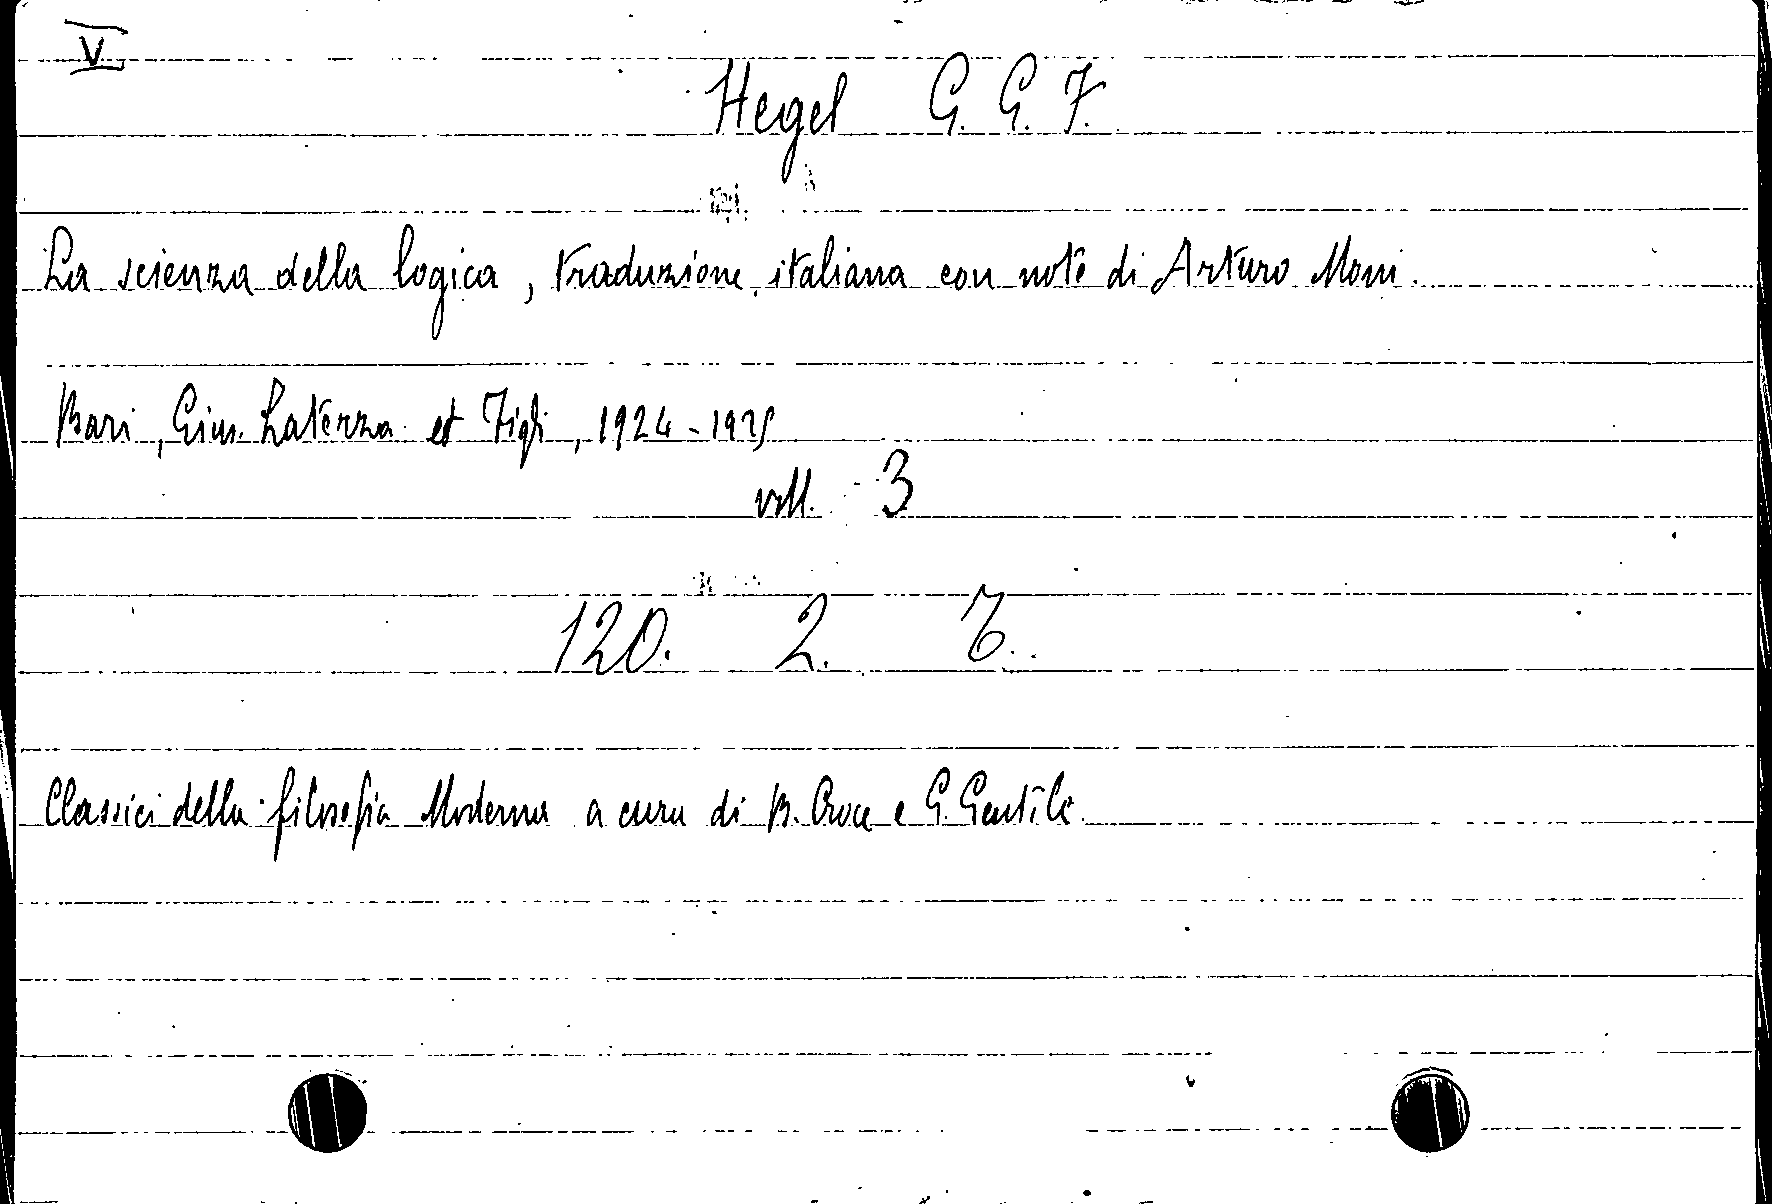 V
Hegel G. G. F.
La scienza della logica, traduzione italiana con note di Arturo Moni.
Bari, Gius. Laterza et Figli, 1924-1925
voll. 3
120. 2. 6.
Classici della filosofia Moderna a cura di B. Croce e G. Gentile.